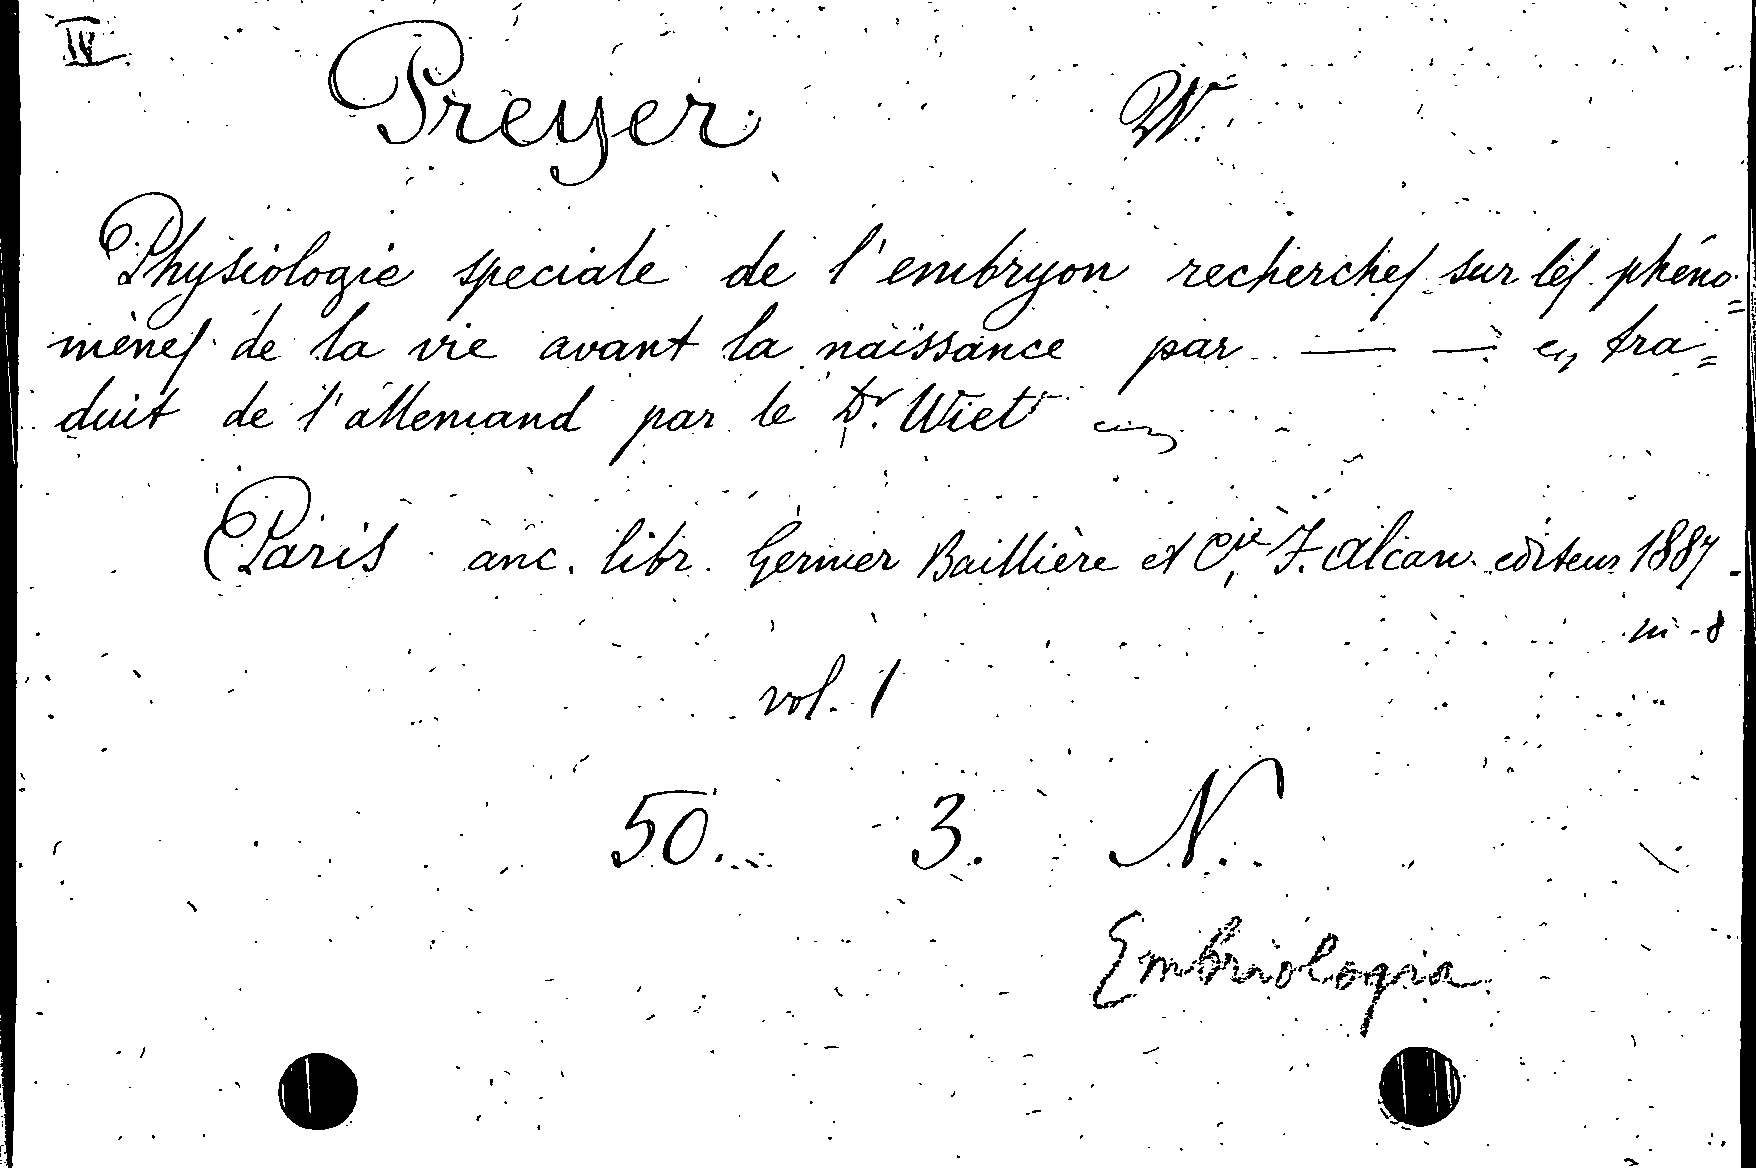 IV
Preyer W.
Physiologie speciale de l'embryon recherches sur les phéno=
mènes de la vie avant la naissance par — — tra=
duit de l'allemand par le Dr. Wiet
Paris anc. libr. Germer Baillière et Cie F. Alcan editeur 1887
in-8
vol. 1
50. 3. N.
Embriologia